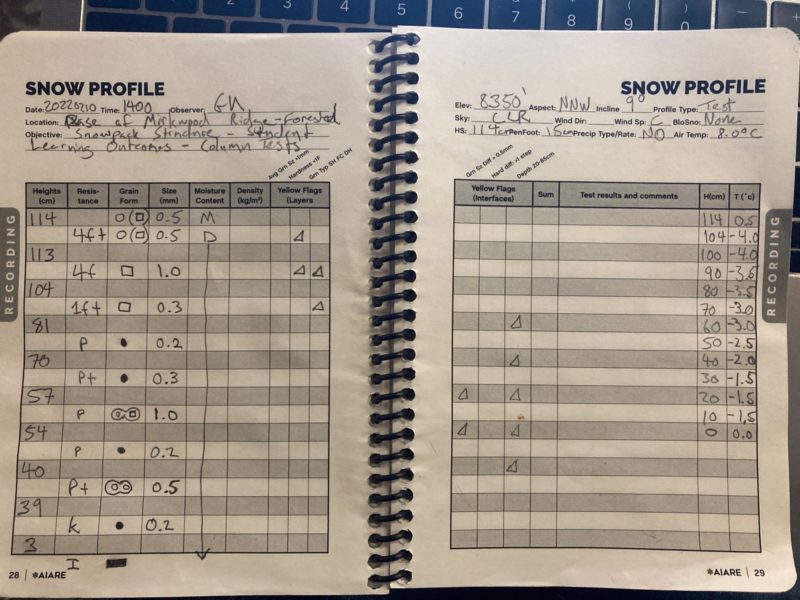 SNOW PROFILE
Date: 20220210 Time: 1400 Observer: GK
Location: Base of Mirkwood Ridge - Forested
Objective: Snowpack Structure - Student
Learning Outcomes - Column Tests
Avg Grn Sz >1mm
Hardness <1F
Grn Typ SH FC DH
Heights (cm) Resistance Grain Form Size (mm) Moisture Content Density (kg/m³) Yellow Flags (Layers
114 0.5 M
4f+ 0.5 D
113
4f 1.0
104
1f+ 0.3
81
P 0.2
70
P+ 0.3
57
P 1.0
54
P 0.2
40
P+ 0.5
39
K 0.2
3
I
28 | AIARE
RECORDING
SNOW PROFILE
Elev: 8350' Aspect: NNW Incline 9° Profile Type: Test
Sky: CLR Wind Dir: Wind Sp: C BloSno: None
HS: 114cm PenFoot: 15cm Precip Type/Rate: NO Air Temp: 8.0°C
Grn Sz Diff > 0.5mm
Hard diff. >1 step
Depth 20-85cm
Yellow Flags (Interfaces) Sum Test results and comments H(cm) T (°c)
114 0.5
104 -4.0
100 -4.0
90 -3.5
80 -3.5
70 -3.0
60 -3.0
50 -2.5
40 -2.0
30 -1.5
20 -1.5
10 -1.5
0 0.0
AIARE | 29
RECORDING